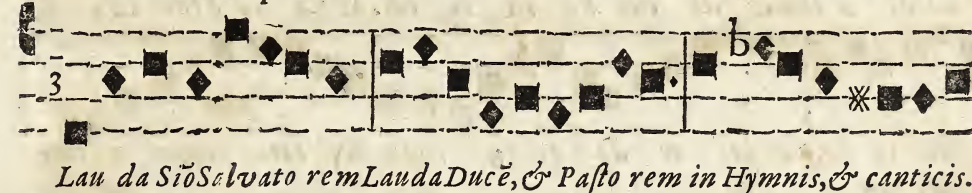 3
b
Lau da SiõSalvato remLaudaDucẽ,& Paſto rem in Hymnis,& canticis